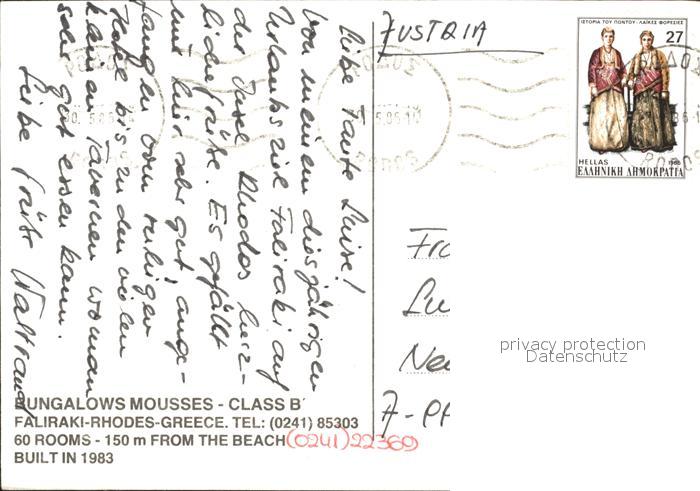 Liebe Tante Luise!
Von meinem diesjährigen
Urlaubsziel Faliraki auf
der Insel Rhodos herz-
liche Grüße. Es gefällt
mir hier sehr gut, ange-
fangen vom ruhigen
Hotel bis zu den vielen
kleinen Tavernen wo man
sehr gut essen kann.
Liebe Grüße Waltraud
BUNGALOWS MOUSSES - CLASS B΄
FALIRAKI-RHODES-GREECE. TEL: (0241) 85303
60 ROOMS - 150 m FROM THE BEACH (0241) 22369
BUILT IN 1983
AUSTRIA
ΙΣΤΟΡΙΑ ΤΟΥ ΠΟΝΤΟΥ-ΛΑΪΚΕΣ ΦΟΡΕΣΙΕΣ
27
HELLAS
ΕΛΛΗΝΙΚΗ ΔΗΜΟΚΡΑΤΙΑ
ΡΟΔΟΣ
Fra
Lu
Ne
A-
privacy protection
Datenschutz